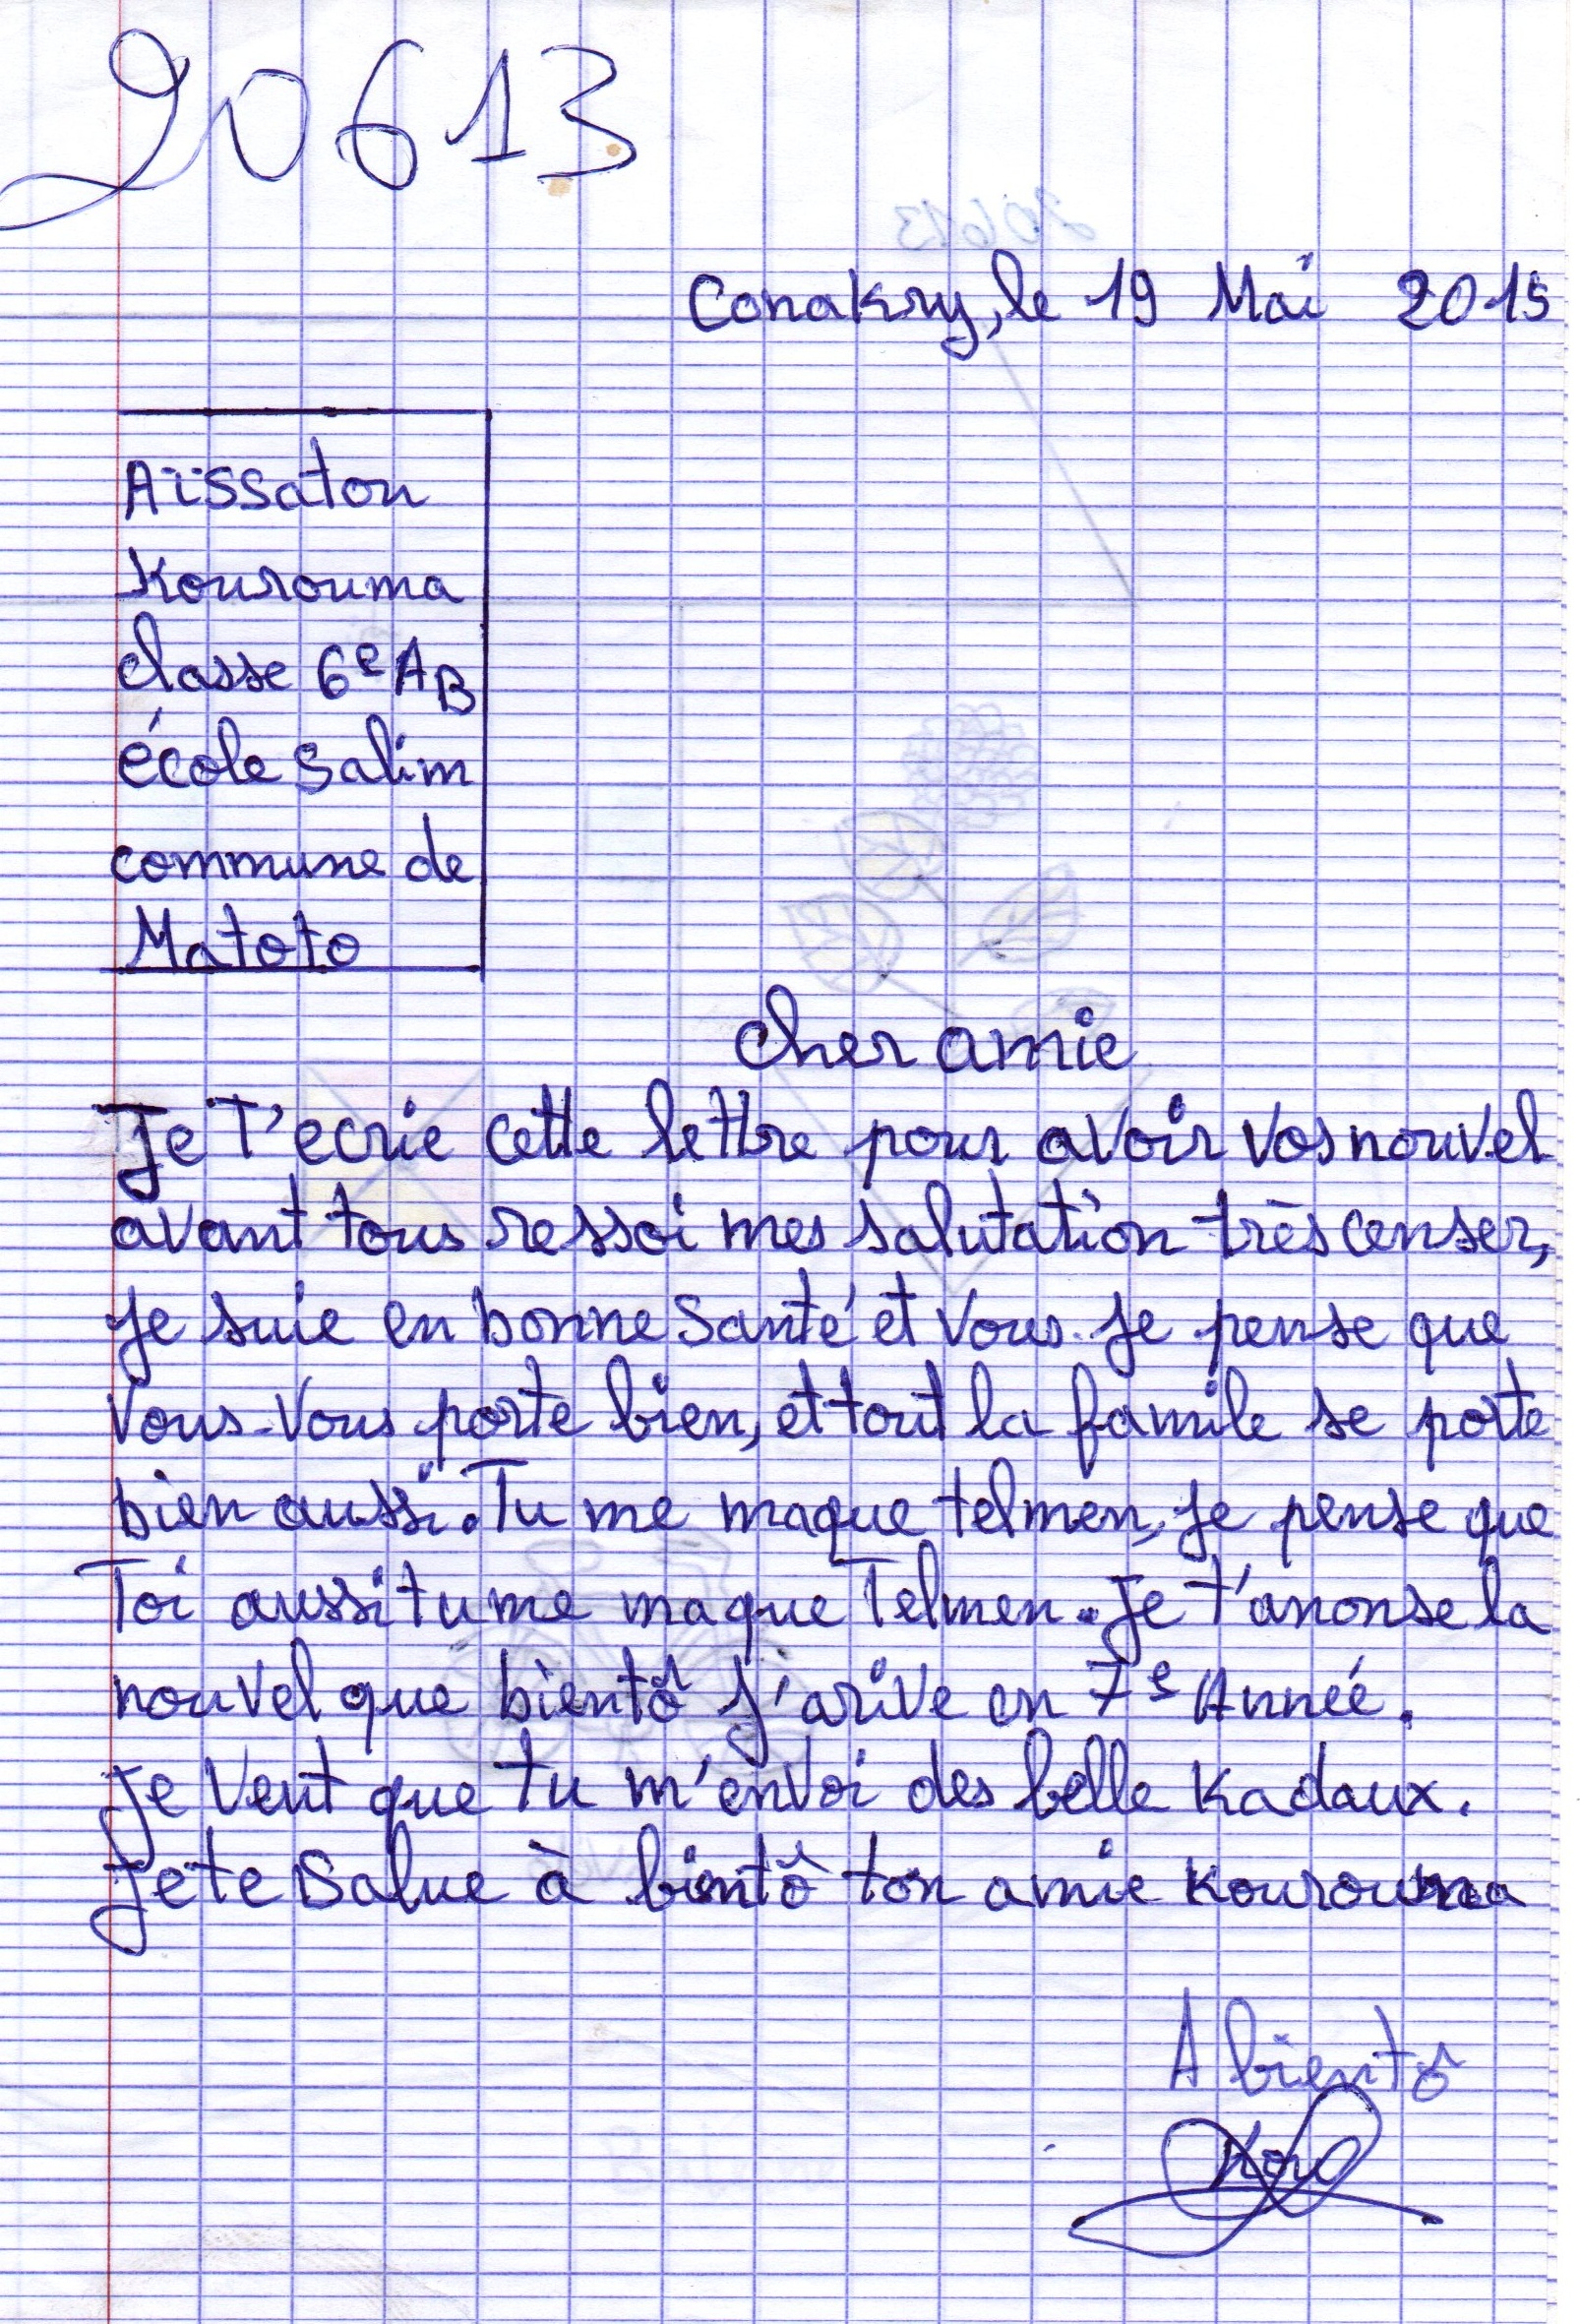 20613
Conakry, le 19 Mai 2015
Aïssatou
Kourouma
classe 6e AB
école Salim
commune de
Matoto
cher amie
Je T'ecrie cette lettre pour avoir vos nouvel
avant tous ressoi mes salutation très censer,
je suie en bonne Santé et Vous. je pense que
Vous-Vous porte bien, et tout la famile se porte
bien aussi. Tu me maque telmen, je pense que
Toi aussi tu me maque Telmen. Je t'anonse la
nouvel que bientô j'arive en 7e Année.
Je Veut que tu m'envoi des belle kadaux.
Je te Salue à bintô ton amie Kourouma
A bientô
Kou